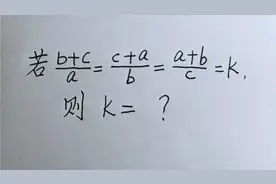 若 (b+c)/a = (c+a)/b = (a+b)/c = K,
则 K= ?